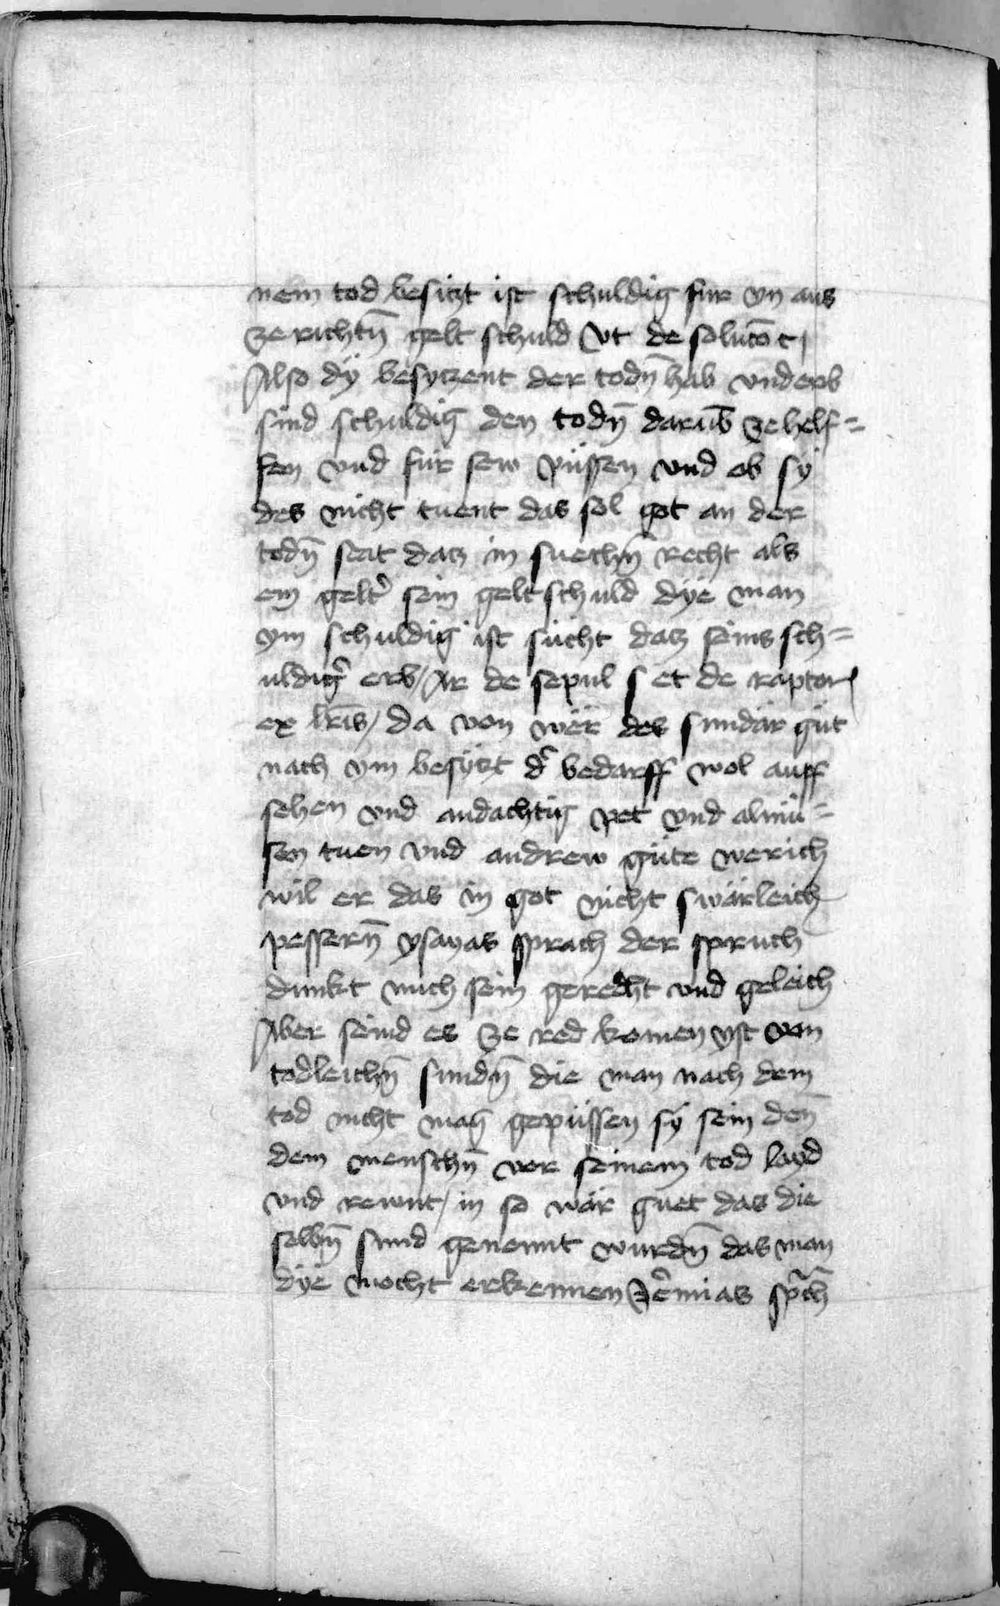 nem tod besitzt ist schuldig fur yn aus
ze richtn̄ gelt schuld vt de solucōt
Also dÿ besytzent der todn̄ hab vnd erb
sind schuldig den todn̄ darūb ze helf=
fen vnd für sew püssen vnd ob sÿ
des nicht tuent das sol got an der
todn̄ stat datz in suechn̄ recht als
ein gelt̾ sein gelt schuld dÿe man
ym schuldig ist sücht datz seins sch=
uldig̾ erb / Ar de sepul s et de raptor
ex lrīs / da von wër des sundär güt
nach ym besÿtzt d̾ bedarff wol auff
sehen vnd andachtig pet vnd almü=
sen tuen vnd andrew güte werich
wil er das in got nicht swärleich
pessern̄ ysayas sprach der spruch
dunkt mich sein gerecht vnd geleich
Aber seind es ze red komen yst von
todleichn̄ sundn̄ die man nach dem
tod nicht mag gepüssen sÿ sein den̄
dem menschn̄ vor seinem tod layd
vnd rewnt / in so wär guet das die
selbn̄ sund genennt wurdn̄ das man
dÿe mocht erkennen Jēmias sprch